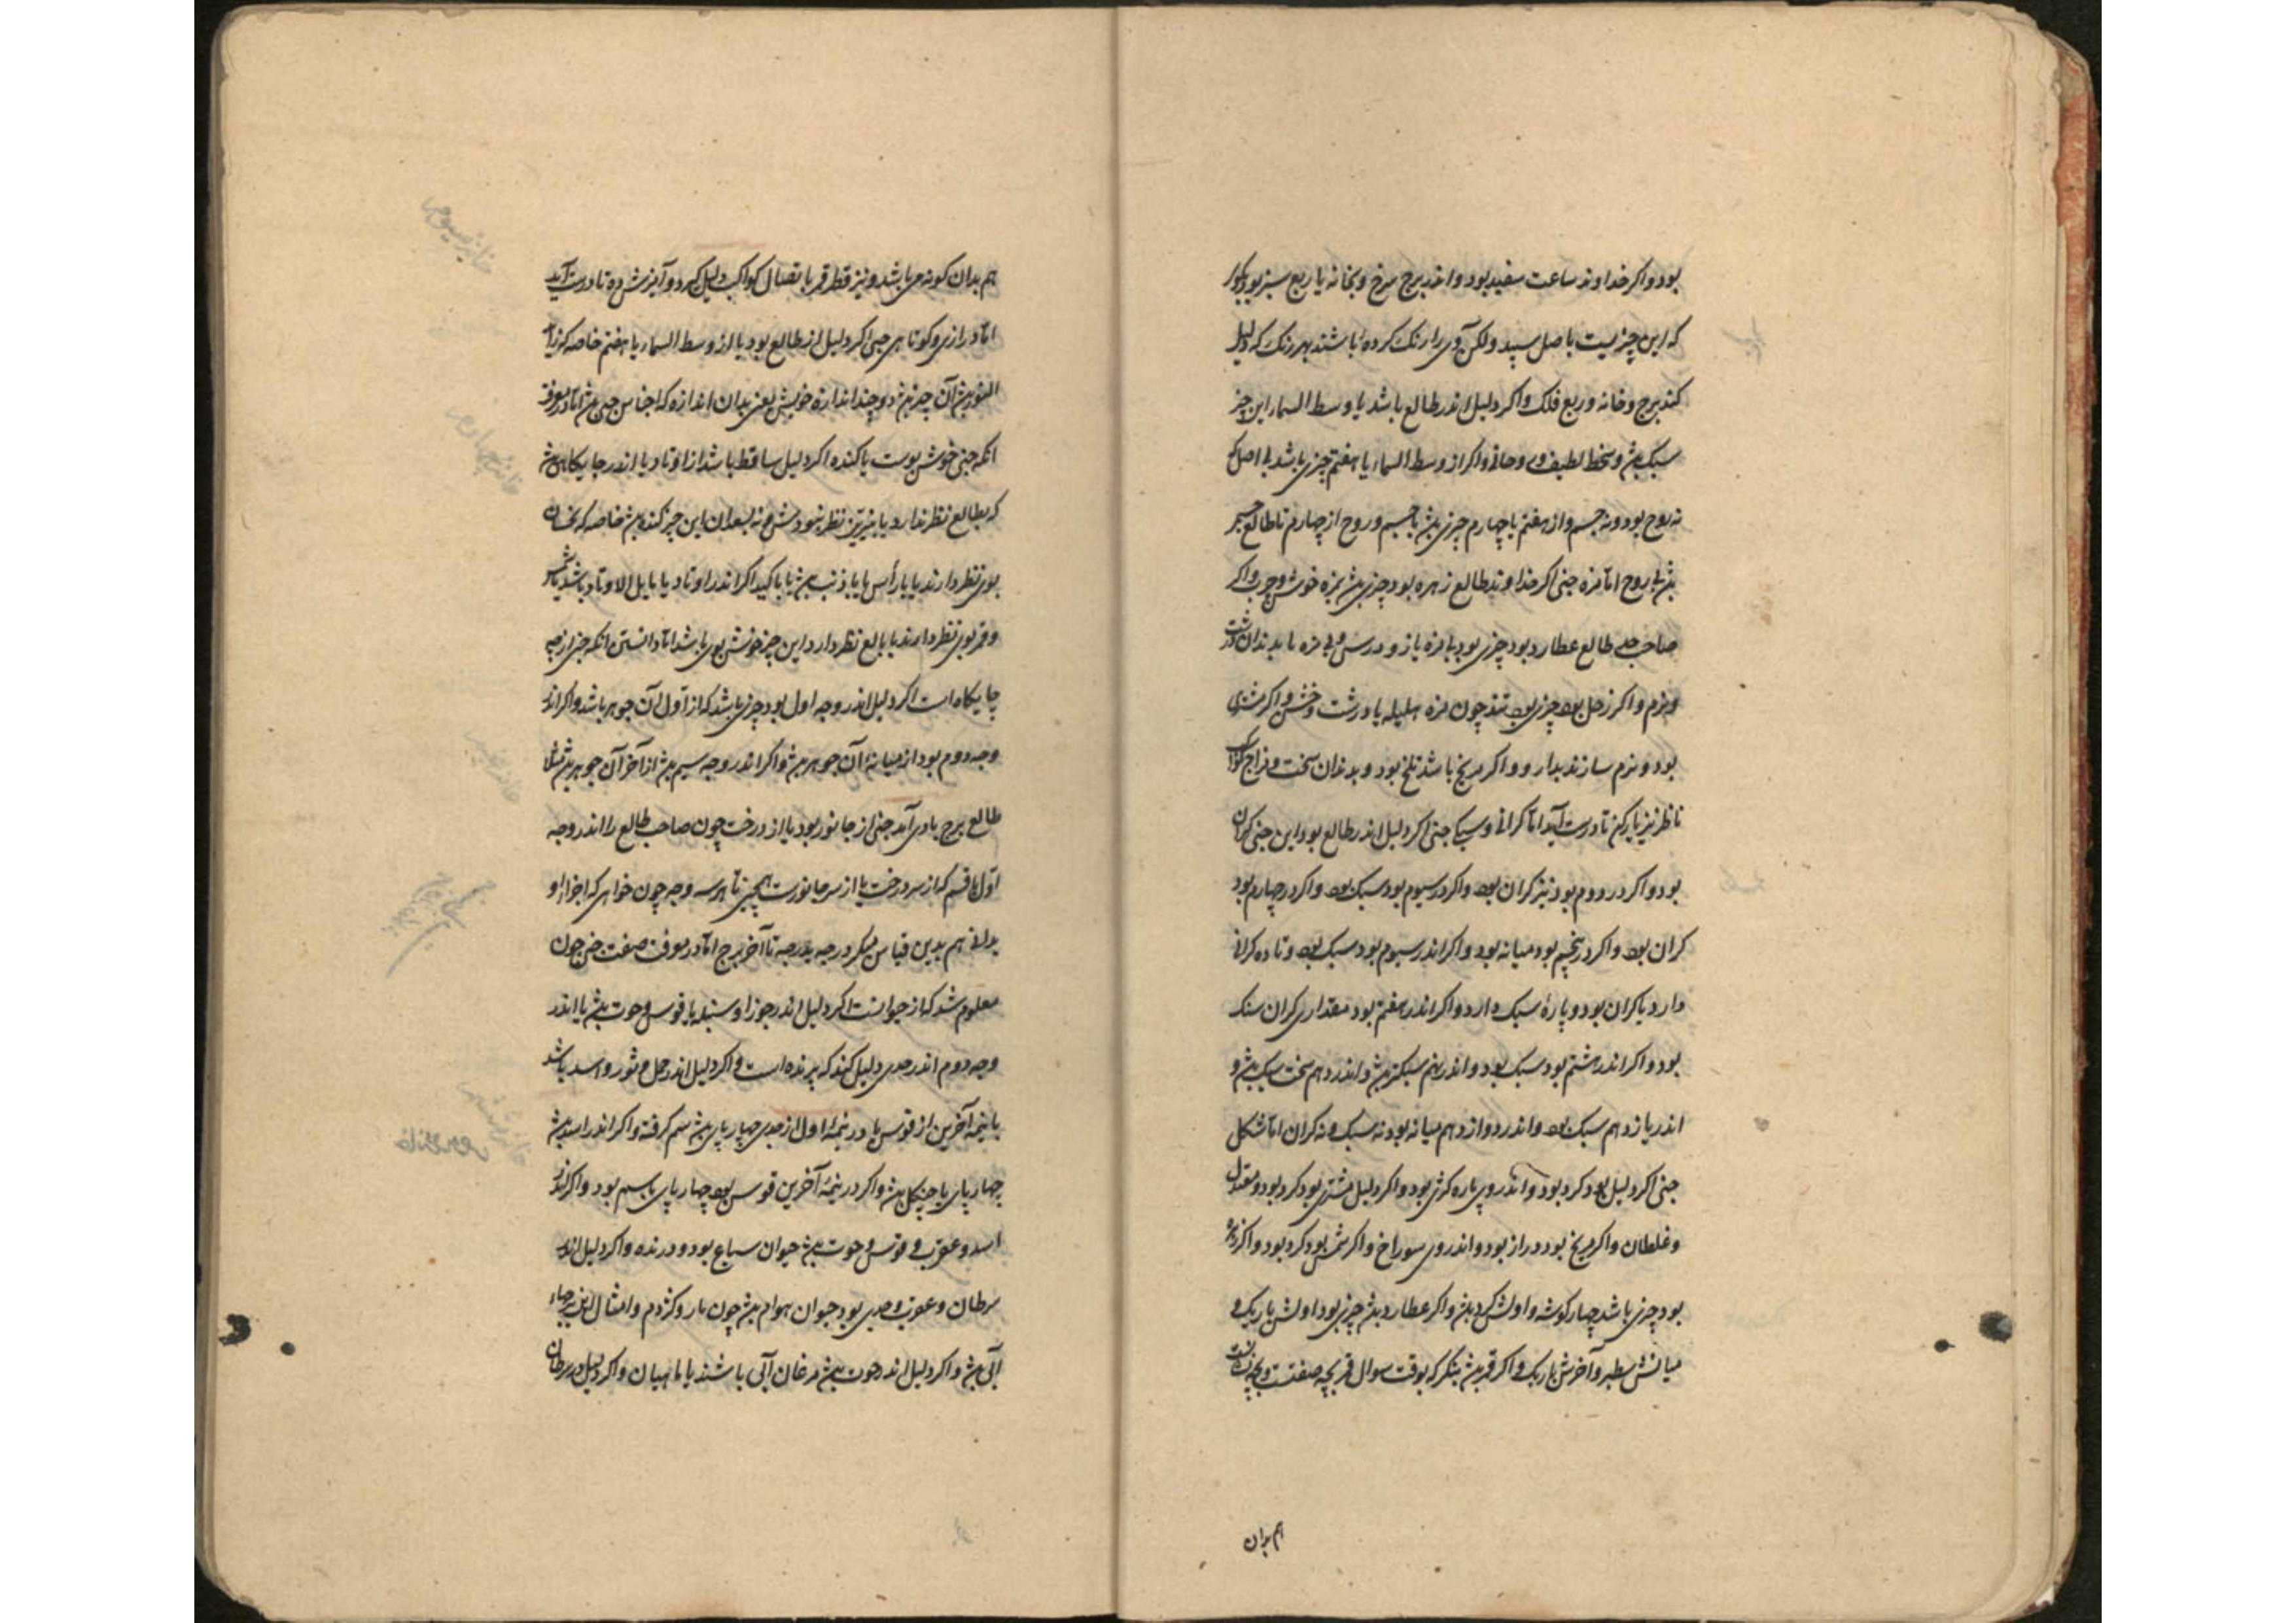 بود و اکر خداوند ساعت سفید بود و اندر برج سرخ و بخانه یا ربع سبز بود بکوی
که این چیزیست باصل سپید ولکن آن وی را رنک کرده باشند بهر رنک که دلیل
کند برج و خانه و ربع فلک و اکر دلیل اندر طالع باشد یا وسط السماء این چیز
سبک بود و لطیف و اکر از وسط السماء یا هفتم چیزی باشد
نه روح بود و نه جسم و از هفتم با چهارم چیزی بود با جسم و روح از چهارم تا طالع جسم
بود بی روح اما مزه خبی اکر خداوند طالع زهره بود چیزی بود بمزه خوش و چرب و اکر
صاحب طالع عطارد بود چیزی بود با مزه
و نرم و اکر زحل بود چیزی بود تند چون مزه هلیله یا درشت و خشن و اکر مشتری
بود و نرم سازند بدارو و اکر مریخ باشد تلخ بود و بدندان سخت و مزاج کواکب
ناظر نیز یار کن تا درست آید اما کرانی و سبکی خبی اکر دلیل اندر طالع بود این خبی کران
بود و اکر در دوم بود نیز کران بود و اکر در سیوم بود سبک بود و اکر در چهارم بود
کران بود و اکر در پنجم بود میانه بود و اکر اندر سیوم بود سبک بود و تا ده کرانی
دارد یا کران بود و پارهٔ سبک دارد و اکر اندر هفتم بود مقداری کران سنک
بود و اکر اندر هشتم بود سبک بود و اندر نهم سبکتر بود و اندر دهم سخت سبک بود و
اندر یازدهم سبک بود و اندر دوازدهم میانه بود نه سبک و نه کران اما شکل
خبی اکر دلیل بود کرد بود و اندر وی پاره کژی بود و اکر دلیل مشتری بود کرد بود و معتدل
و غلطان و اکر مریخ بود دراز بود و اندر وی سوراخ و اکر شمس بود کرد بود و اکر زهره
بود چیزی باشد چهار کوشه و اولش کرد بود و اکر عطارد بود چیزی بود اولش باریک و
میانش سطبر و آخرش باریک و اکر قمر بود بنکر که بوقت سوال قمر بچه صفتست
هم بدان
هم بدان کونه می باشد و نیز نظر قمر باتصال کواکب دلیل کیرد و آمیزش ده تا درست آید
اما درازی و کوتاهی خبی اکر دلیل از طالع بود یا از وسط السماء یا هفتم خاصه که زاید
النور بود آن چیز بود دو چند اندازه خویش یعنی بدان اندازه که اجناس خبی بود اما در معرفت
آنکه خبی خوش بوست یا کنده اکر دلیل ساقط باشد از اوتاد یا اندر جایکاهی بود
که بطالع نظر ندارد یا نیز نظر نبودش نه بسعدان این چیز کنده بود خاصه که نحسان
بوی نظر دارند یا با رأس یا با ذنب بود یا با کید اکر اندر اوتاد یا مایل الاوتاد باشد یا شمس
و قمر بوی نظر دارند یا بطالع نظر دارد این چیز خوش بوی باشد اما دانستن آنکه خبی از چه
جایکاه است اکر دلیل اندر وجه اول بود چیزی باشد که از اول آن جوهر باشد و اکر اندر
وجه دوم بود از میانهٔ آن جوهر بود و اکر اندر وجه سیم بود از آخر آن جوهر بود مثلا
طالع برج بادی آمد خبی از جانور بود یا از درخت چون صاحب طالع را اندر وجه
اول یافتیم که از سر درخت یا از سر جانورست همچنین تا هر سه وجه چون خواهی که اجزاء او
بدانی هم بدین قیاس میکن درجه بدرجه تا آخر برج اما در معرفت صفت خبی چون
معلوم شد که از حیوانست اکر دلیل اندر جوزا و سنبله یا قوس و حوت بود یا اندر
وجه دوم اندر جدی دلیل کند که پرنده است و اکر دلیل اندر حمل و ثور و اسد باشد
یا نیمه آخرین از قوس یا در نیمه اول از جدی چهارپای بود سم کرفته و اکر اندر اسد بود
چهارپای با چنکل بود و اکر در نیمهٔ آخرین قوس بود چهارپای باسم بود و اکر اندر
اسد و عقرب و قوس و حوت بود حیوان سباع بود و درنده و اکر دلیل اندر
سرطان و عقرب و جدی بود حیوان هوام بود چون مار و کژدم و امثال این برجهاء
آبی بود و اکر دلیل اندر حوت بود مرغان آبی باشند یا ماهیان و اکر دلیل در سرطان